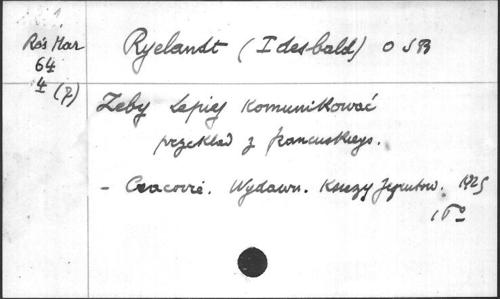 Rós Har
64
4 (7)
Ryelandt (Idesbald) O S B
Zeby Lepiej Komunikować
przekład z francuskiego.
- Cracovie. Wydawn. Księży Jezuitów. 1925